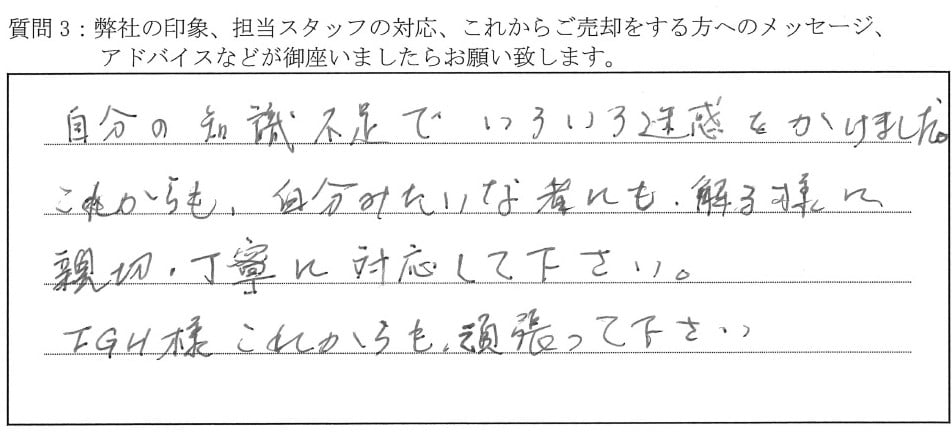 質問3：弊社の印象、担当スタッフの対応、これからご売却をする方へのメッセージ、
アドバイスなどが御座いましたらお願い致します。
自分の知識不足でいろいろ迷惑をかけました。
これからも、自分みたいな者にも、解る様に
親切・丁寧に対応して下さい。
TGH様これからも、頑張って下さい